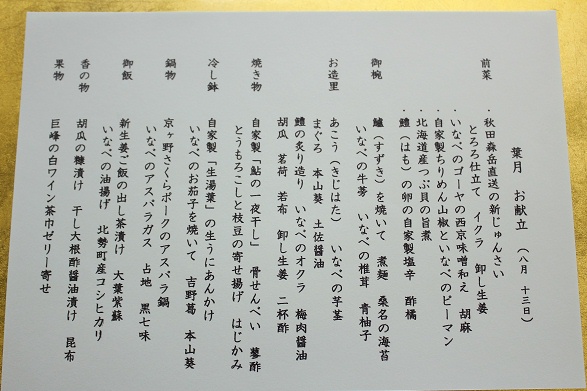 葉月　お献立　（八月　十三日）
前菜　・秋田森岳直送の新じゅんさい
とろろ仕立て　イクラ　卸し生姜
・いなべのゴーヤの西京味噌和え　胡麻
・自家製ちりめん山椒といなべのピーマン
・北海道産つぶ貝の旨煮
・鱧（はも）の卵の自家製塩辛　酢橘
御椀　鱸（すずき）を焼いて　煮麺　桑名の海苔
いなべの牛蒡　いなべの椎茸　青柚子
お造里　あこう（きじはた）　いなべの芋茎
まぐろ　本山葵　土佐醤油
鱧の炙り造り　いなべのオクラ　梅肉醤油
胡瓜　茗荷　若布　卸し生姜　二杯酢
焼き物　自家製「鮎の一夜干し」　骨せんべい　蓼酢
とうもろこしと枝豆の寄せ揚げ　はじかみ
冷し鉢　自家製「生湯葉」の生うにあんかけ
いなべのお茄子を焼いて　吉野葛　本山葵
鍋物　京ヶ野さくらポークのアスパラ鍋
いなべのアスパラガス　占地　黒七味
御飯　新生姜ご飯の出し茶漬け　大葉紫蘇
いなべの油揚げ　北勢町産コシヒカリ
香の物　胡瓜の糠漬け　干し大根酢醤油漬け　昆布
果物　巨峰の白ワイン茶巾ゼリー寄せ